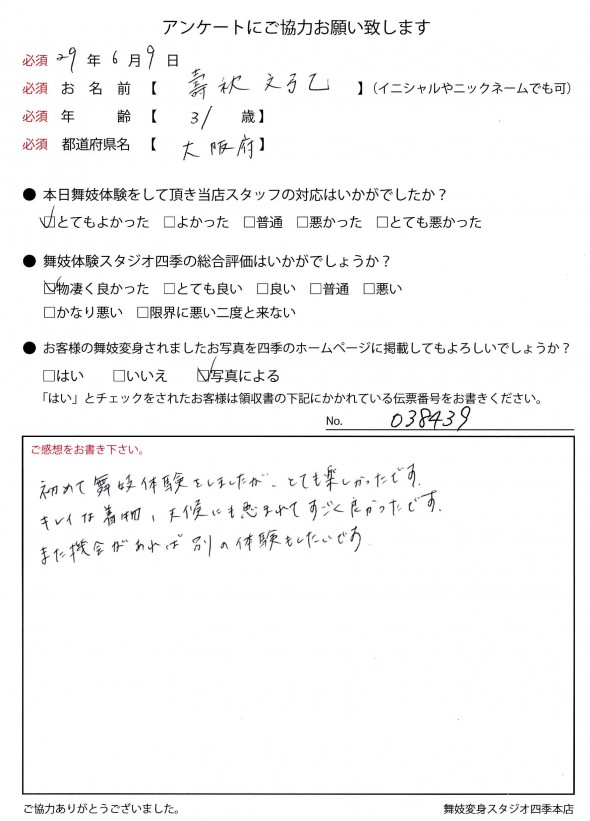 アンケートにご協力お願い致します
必須 29 年 6 月 9 日
必須 お 名 前 【 壽 秋 】(イニシャルやニックネームでも可)
必須 年 齢 【 31 歳】
必須 都道府県名 【 大阪府 】
● 本日舞妓体験をして頂き当店スタッフの対応はいかがでしたか?
☑とてもよかった □よかった □普通 □悪かった □とても悪かった
● 舞妓体験スタジオ四季の総合評価はいかがでしょうか?
☑物凄く良かった □とても良い □良い □普通 □悪い
□かなり悪い □限界に悪い二度と来ない
● お客様の舞妓変身されましたお写真を四季のホームページに掲載してもよろしいでしょうか?
□はい □いいえ ☑写真による
「はい」とチェックをされたお客様は領収書の下記にかかれている伝票番号をお書きください。
No. 038439
ご感想をお書き下さい。
初めて舞妓体験をしましたが、とても楽しかったです。
キレイな着物、天候にも恵まれてすごく良かったです。
また機会があれば別の体験もしたいです
ご協力ありがとうございました。
舞妓変身スタジオ四季本店